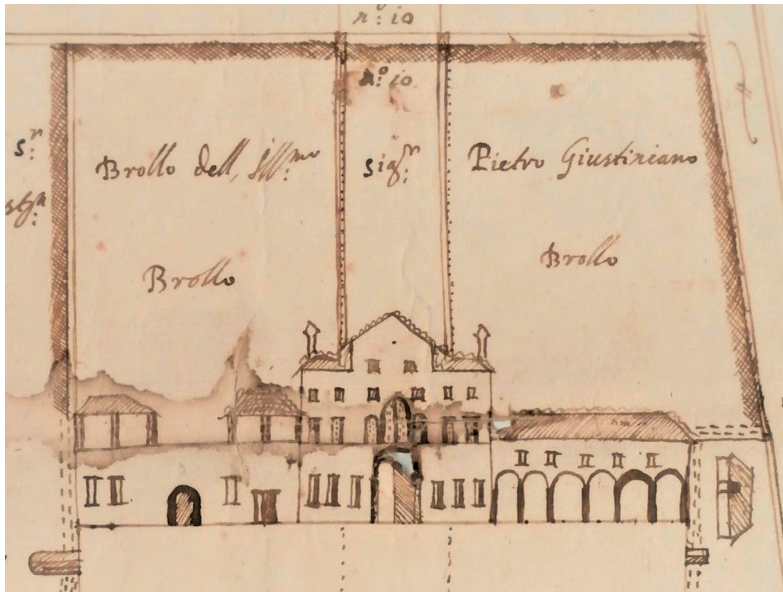 n.º 10
n.º 10
s.ʳ
Brollo dell, Ill.ᵐᵒ sig.ʳ Pietro Giustiniano
Brollo
Brollo